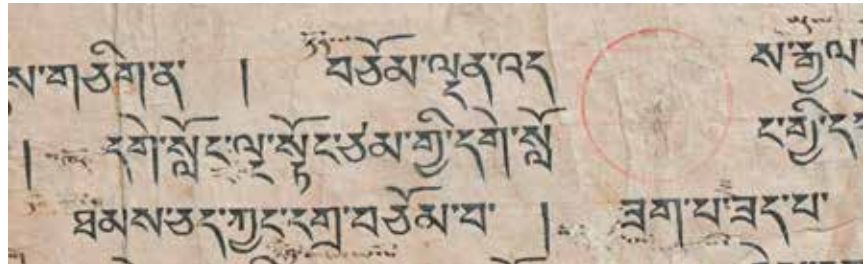 ས་གཅིག་ན་ ། བཅོམ་ལྡན་འད ས་རྒྱལ་
། དགེ་སློང་ལྔ་སྟོང་ཙམ་གྱི་དགེ་སློ ང་གྱི་ད
ཐམས་ཅད་ཀྱང་དགྲ་བཅོམ་པ་ ། ཟག་པ་ཟད་པ་